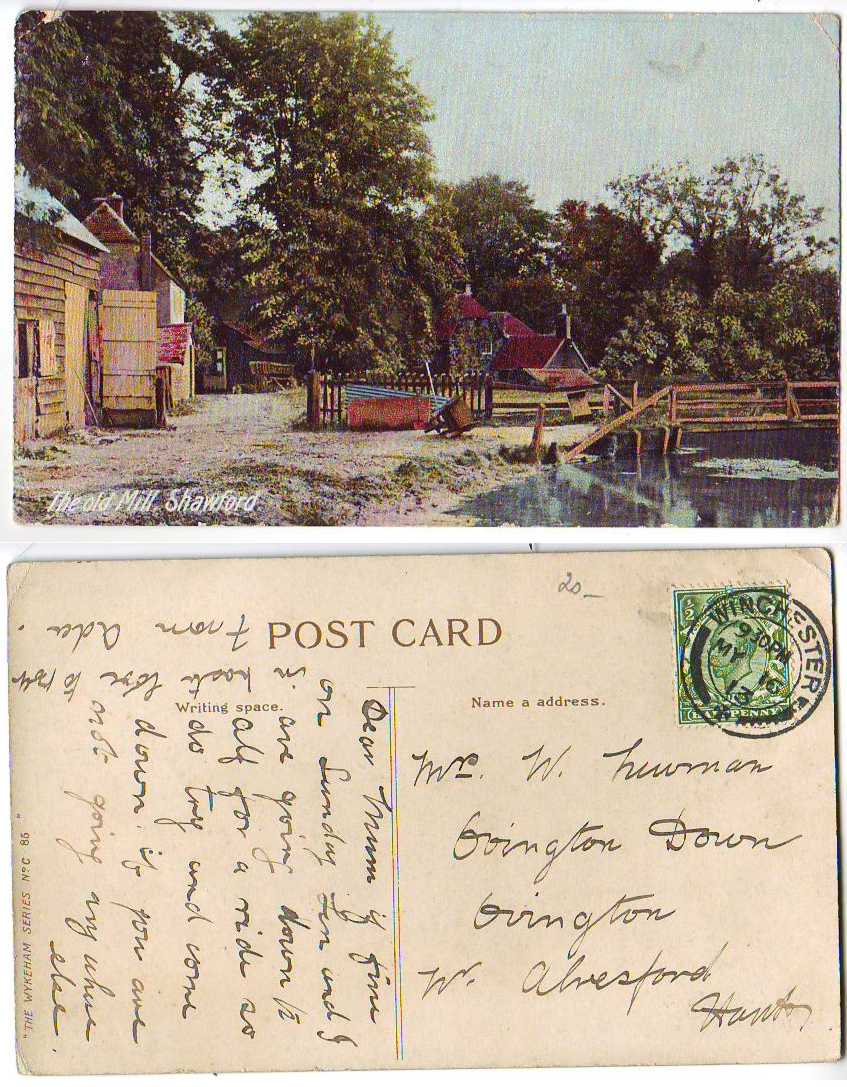 The old Mill, Shawford
20-
POST CARD
Writing space.
Name & address.
WINCHESTER
9 30 PM
MY 15
13
½
HALFPENNY
Dear Mum if fine
on Sunday Len and I
are going down ½
alf for a ride so
do try and come
down if you are
not going anywhere
else.
in haste love to
From Ada.
Mrs. W. Newman
Ovington Down
Ovington
Nr. Alresford
Hants
"THE WYKEHAM SERIES NO C 85"